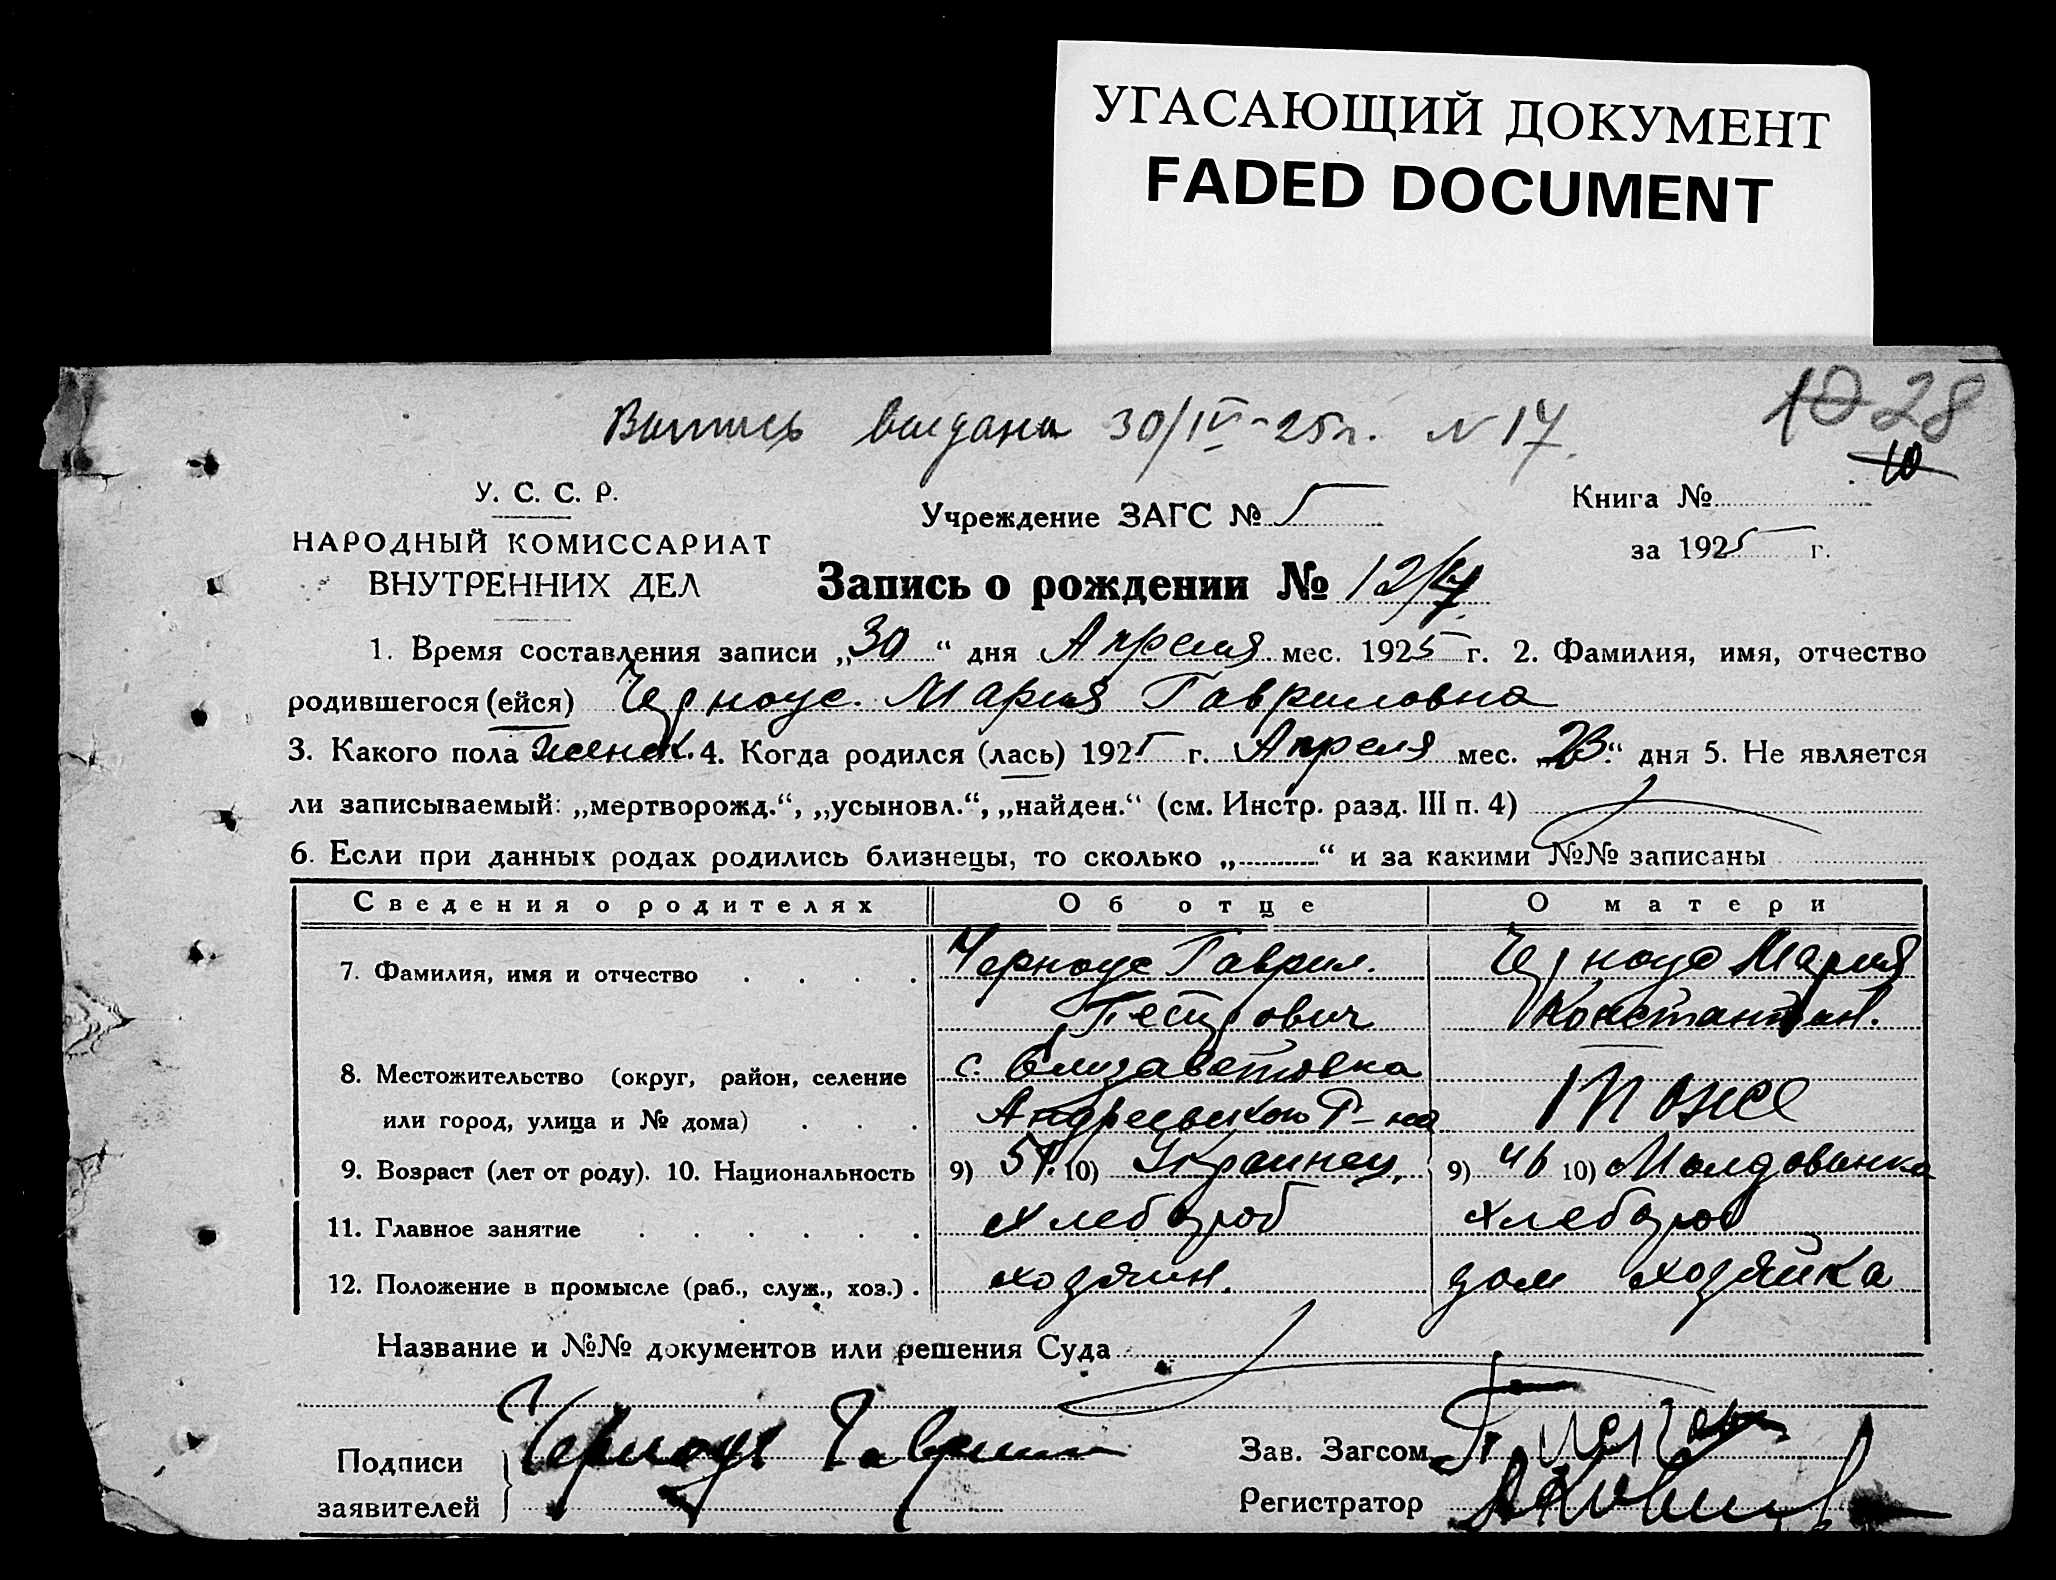 УГАСАЮЩИЙ ДОКУМЕНТ
FADED DOCUMENT
10 28
Выпись выдана 30/IV-25г. N 17.
10
У. С. С. Р.
НАРОДНЫЙ КОМИССАРИАТ
ВНУТРЕННИХ ДЕЛ
Учреждение ЗАГС № 5
Книга №
за 1925 г.
Запись о рождении № 12/
1. Время составления записи „30“ дня Апреля мес. 1925 г. 2. Фамилия, имя, отчество
родившегося (ейся) Черноус. Мария Гавриловна
3. Какого пола женск. 4. Когда родился (лась) 1925 г. Апреля мес. „23.“ дня 5. Не является
ли записываемый: „мертворожд.“, „усыновл.“, „найден.“ (см. Инстр. разд. III п. 4)
6. Если при данных родах родились близнецы, то сколько „..........“ и за какими №№ записаны
Сведения о родителях Об отце О матери
7. Фамилия, имя и отчество . . . . Черноус Гаврил. Черноус Мария
Петрович Константин.
8. Местожительство (округ, район, селение с. Елизаветовка
или город, улица и № дома) . . . Андреевского Р-на тоже
9. Возраст (лет от роду). 10. Национальность 9) 10) Украинец, 9) 46 10) Молдованка
11. Главное занятие . . . . . . хлебороб хлебороб
12. Положение в промысле (раб., служ., хоз.) . хозяин. дом хозяйка
Название и №№ документов или решения Суда
Подписи
заявителей
Черноус Гаврил
Зав. Загсом
Регистратор